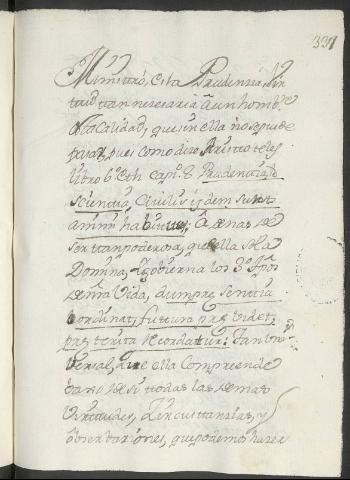 337
Ministro, esta Prudensia, Vir
tud tan nesesaria â un hombre
de ta Calidad, que sin ella no se puede
pasar, pues como dize Aristoteles
libro 6º Eth capº 8 Prudentia, et
scientia, Civilis ijdem sunt
animi habitus; Â demas de
ser tan poderosa, que ella sola
Domina, y gobierna los 3º tpos
de nra Vida, dum presentia
ordinat, futura prævidet,
preterita recordatur: tan Uni
versal, que ella Comprende
dentro de si todas las demas
virtudes, Sircunstansias, y
observasiones, que podemos hazer